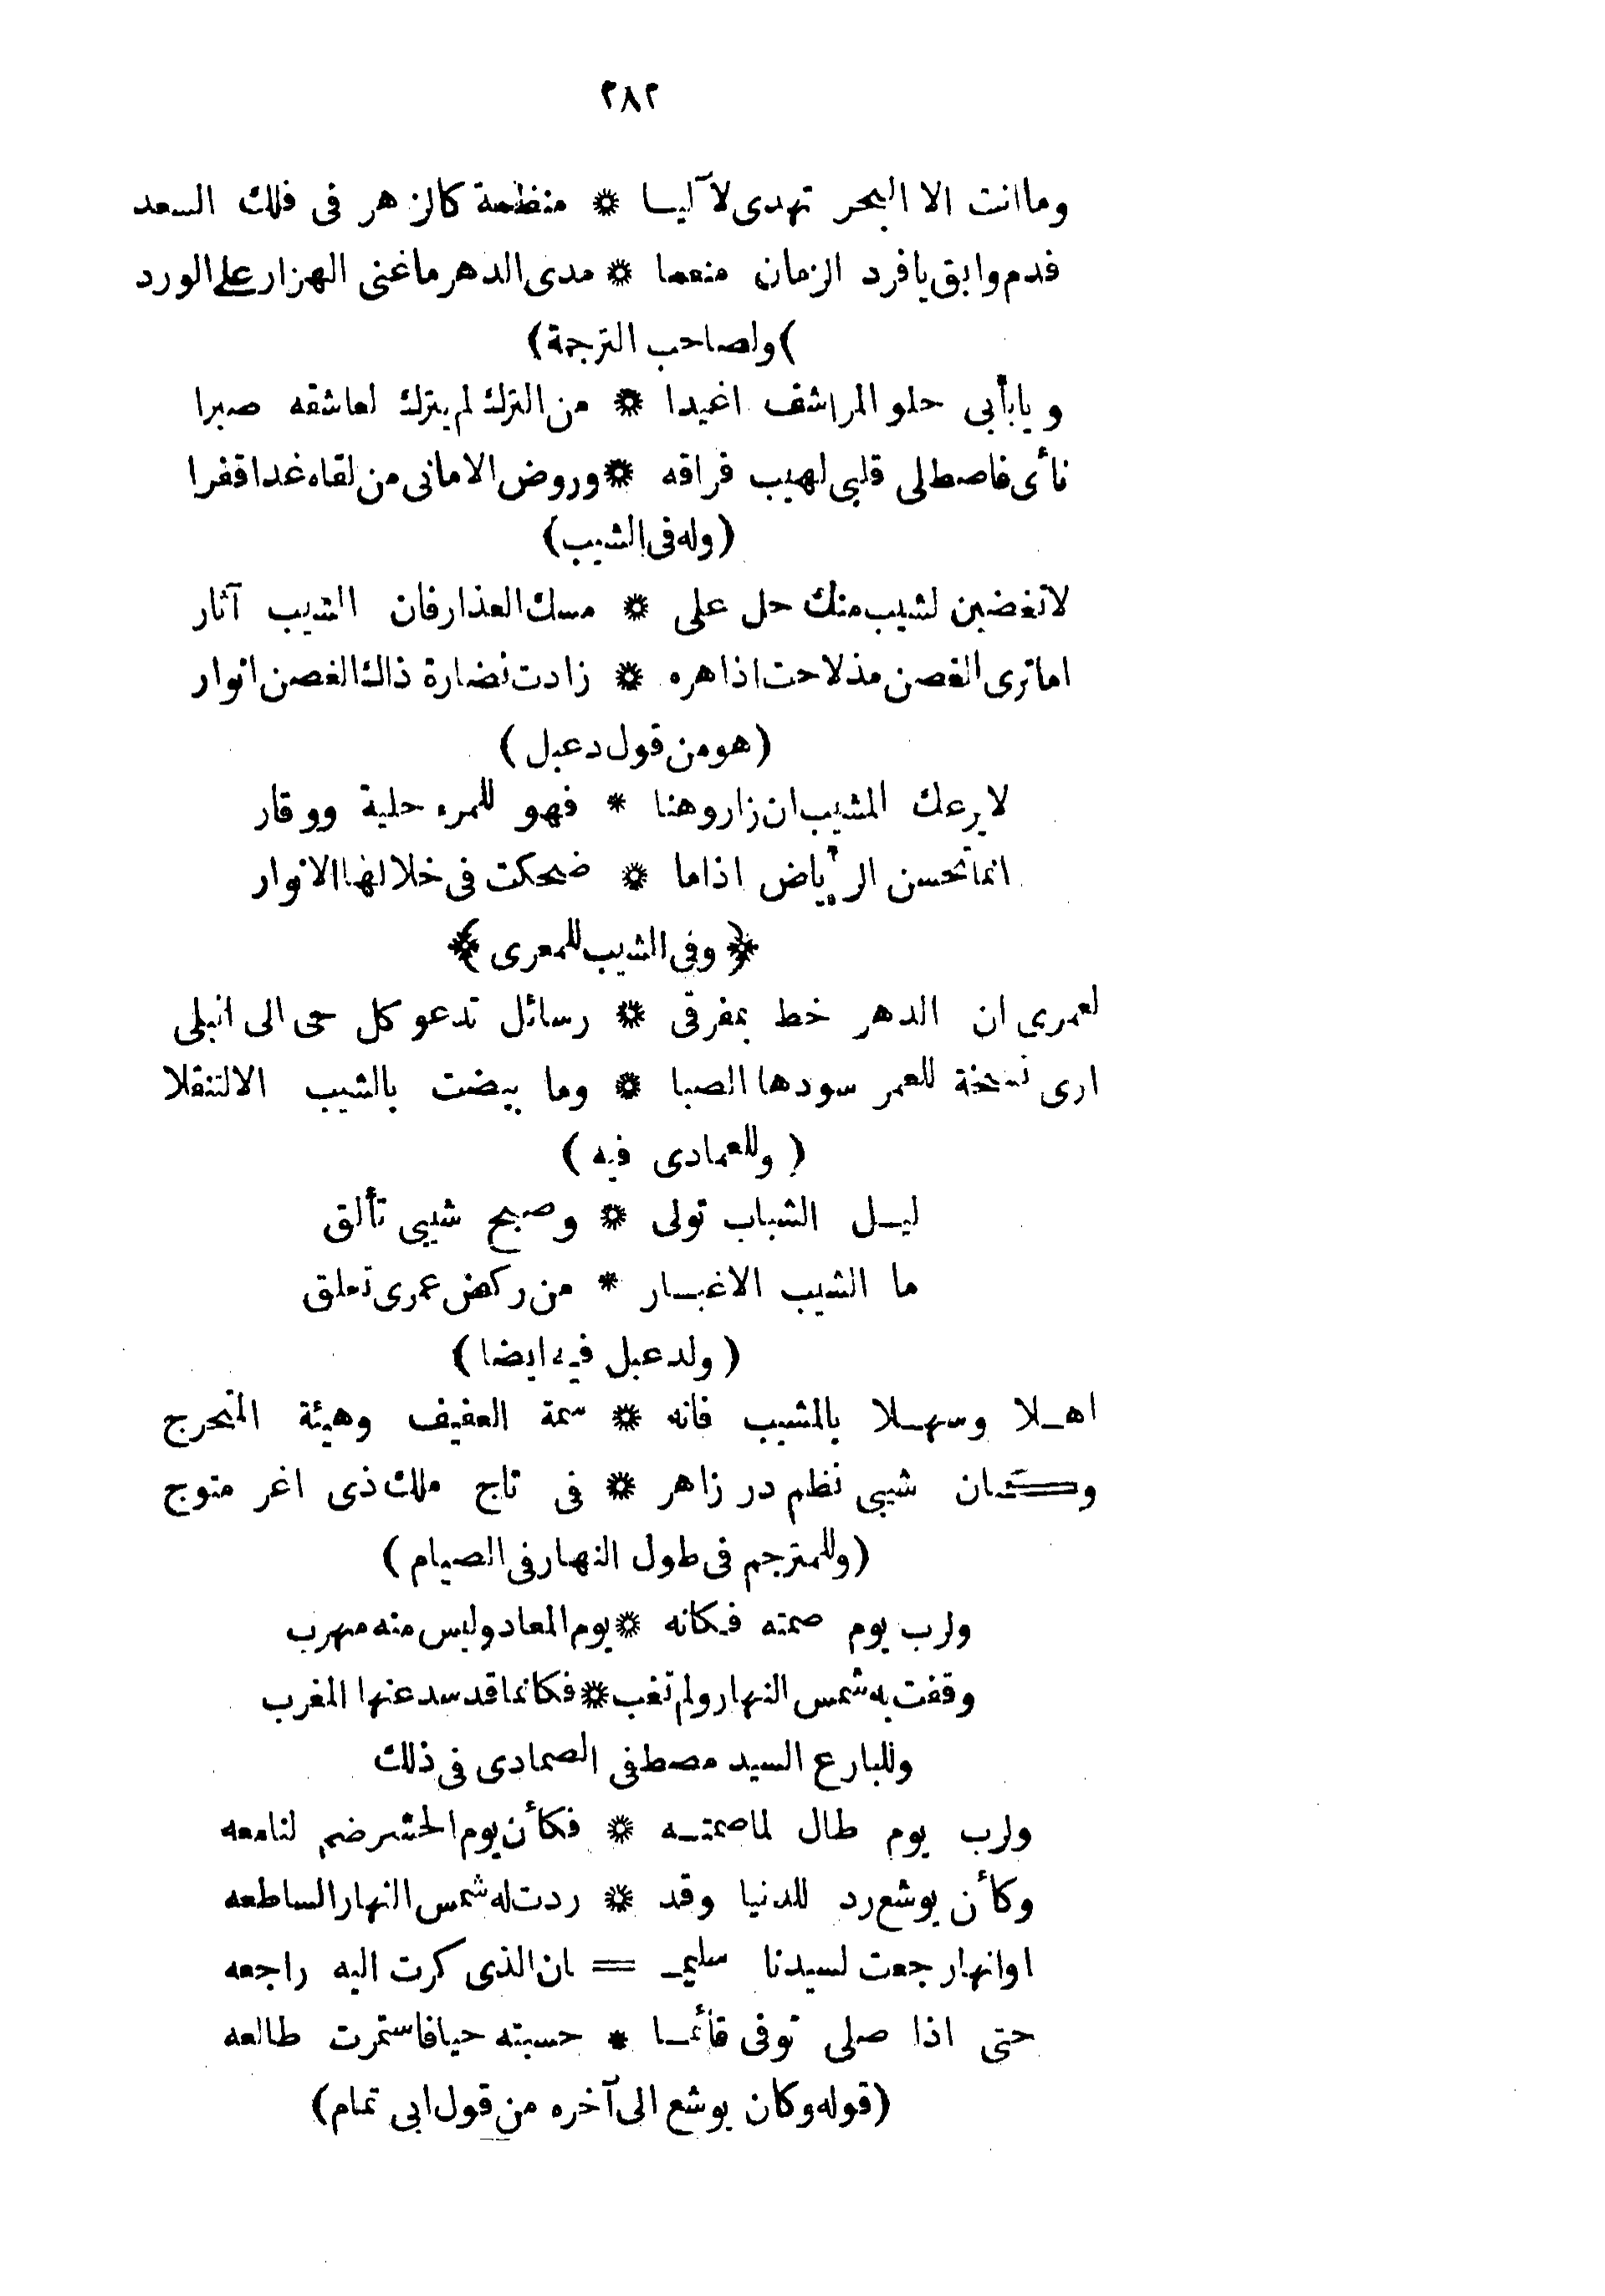 ٢٨٢
وما انت الا البحر تهدى لآليا * منظمة كالزهر فى فلك السعد
فدم وابق يا فرد الزمان منعما * مدى الدهر ما غنى الهزار على الورد
(ولصاحب الترجمة)
ويا بأبى حلو المراشف اغيدا * من الترك لم يترك لعاشقه صبرا
نأى فاصطلى قلبى لهيب فراقه * وروض الامانى من لقاه غدا قفرا
(وله فى الشيب)
لا تغضبن لشيب منك حل على * مسك العذار فان الشيب آثار
اما ترى الغصن مذ لاحت اذاهره * زادت نضارة ذاك الغصن انوار
(هو من قول دعبل)
لا يرعك المشيب ان زار وهنا * فهو للمرء حلية ووقار
انما تحسن الرياض اذا ما * ضحكت فى خلالها الانوار
﴿ وفى الشيب للمعرى ﴾
لعمرى ان الدهر خط بمفرقى * رسائل تدعو كل حى الى انبلى
ارى نسخة للعمر سودها الصبا * وما بيضت بالشيب الا لتنقلا
(وللعمادى فيه)
ليــل الشباب تولى * وصبح شيبى تألق
ما الشيب الا غبــار * من ركض عمرى تعلق
(ولدعبل فيه ايضا)
اهــلا وسهــلا بالمشيب فانه * سمة العفيف وهيئة المتحرج
وكــأن شيبى نظم در زاهر * فى تاج ملك ذى اغر متوج
(وللمترجم فى طول النهار فى الصيام)
ولرب يوم صمته فكانه * يوم المعاد وليس منه مهرب
وقفت به شمس النهار ولم تغب * فكانما قد سد عنها المغرب
وللبارع السيد مصطفى الصمادى فى ذلك
ولرب يوم طال لما صمتــه * فكأن يوم الحشر ضم لنا معه
وكأن يوشع رد للدنيا وقد * ردت له شمس النهار الساطعه
او انها رجعت لسيدنا سليمـ = ـان الذى كرت اليه راجعه
حتى اذا صلى توفى قائمــا * حسبته حيا فاستمرت طالعه
(قوله وكان يوشع الى آخره من قول ابى تمام)